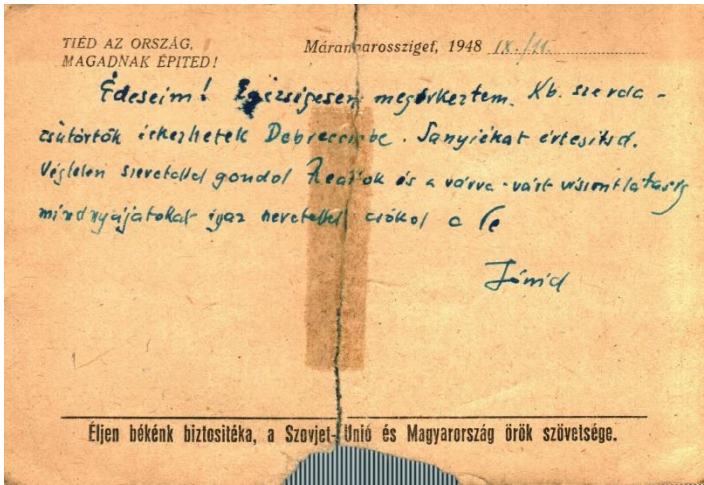 TIÉD AZ ORSZÁG,
MAGADNAK ÉPITED!
Máramarossziget, 1948 IX./11.
Édeseim! Egészségesen megérkeztem. Kb. szerda-
csütörtök érkezhetek Debrecenbe. Sanyiékat értesitsd.
Végtelen szeretettel gondol Reátok és a várva-várt viszontlátásig
mindnyájatokat igaz szeretettel csókol a Te
Éljen békénk biztositéka, a Szovjet-Unió és Magyarország örök szövetsége.